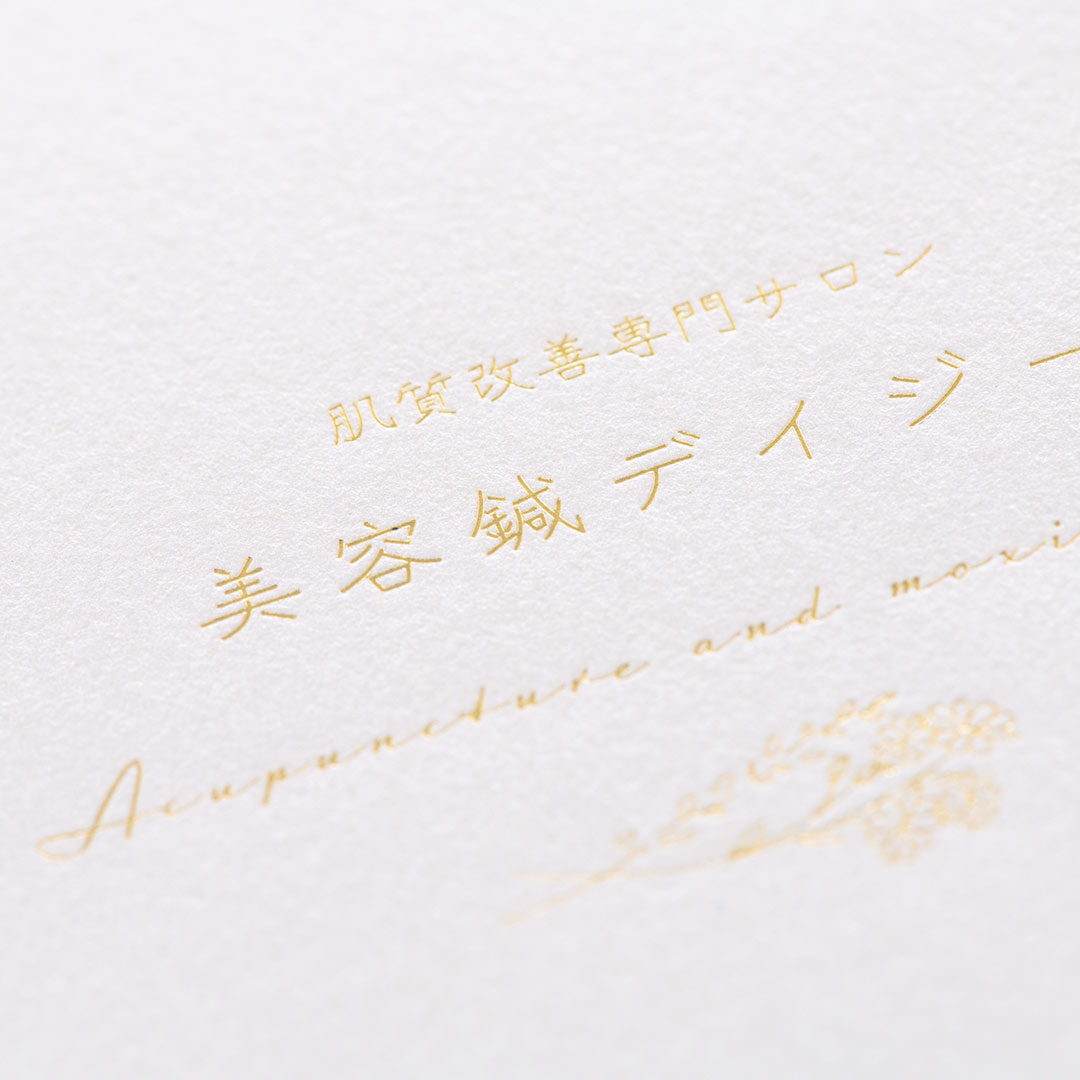 肌質改善専門サロン
美容鍼デイジー
Acupuncture and moxi